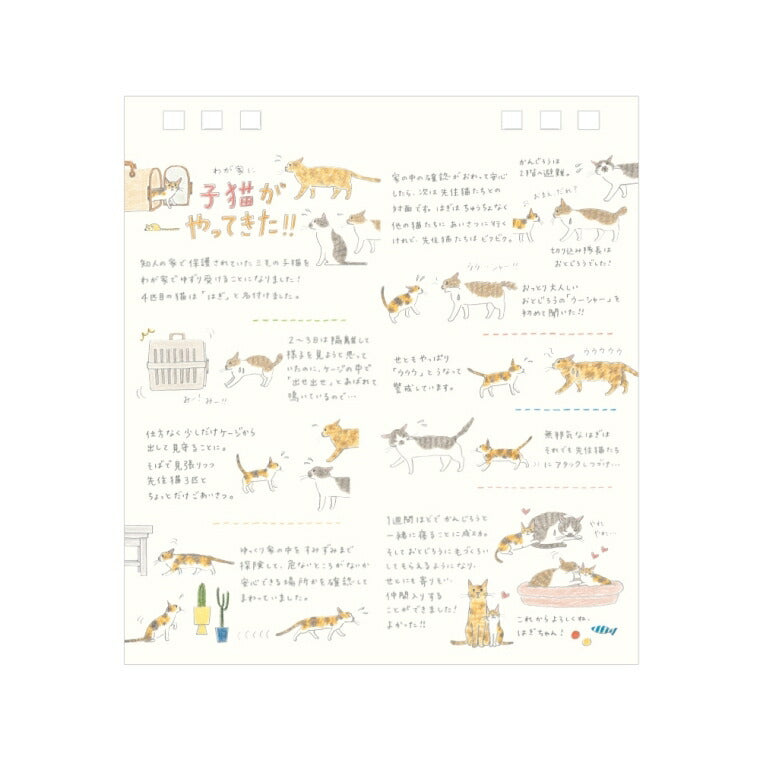 わが家に
子猫が
やってきた!!
知人の家で保護されていた三毛の子猫を
わが家でゆずり受けることになりました!
4匹目の猫は「はぎ」と名付けました。
2〜3日は隔離して
様子を見ようと思って
いたのに、ケージの中で
「出せ出せ」とあばれて
鳴いているので…
みー!みー!!
仕方なく少しだけケージから
出して見守ることに。
そばで見張りつつ
先住猫3匹と
ちょっとだけごあいさつ。
ゆっくり家の中をすみずみまで
探険して、危ないところがないか
安心できる場所かを確認して
まわっていました。
家の中の確認がおわって安心
したら、次は先住猫たちとの
対面です。はぎはちゅうちょなく
他の猫たちにあいさつに行く
けれど、先住猫たちはビクビク。
かんじろうは
2階へ避難。
おまえだれ?
切り込み隊長は
おとじろうでした!
ウウーシャー!!
おっとり大人しい
おとじろうの「ウーシャー」を
初めて聞いた!!
せともやっぱり
「ウウウ」とうなって
警戒しています。
ウウウウウ
無邪気なはぎは
それでも先住猫たち
にアタックしつづけ…
1週間ほどでかんじろうと
一緒に寝ることに成功。
そしておとじろうに毛づくろい
してもらえるようになり、
せとにも寄りそい、
仲間入りする
ことができました!
よかった!!
やれ
やれ…
これからよろしくね、
はぎちゃん!